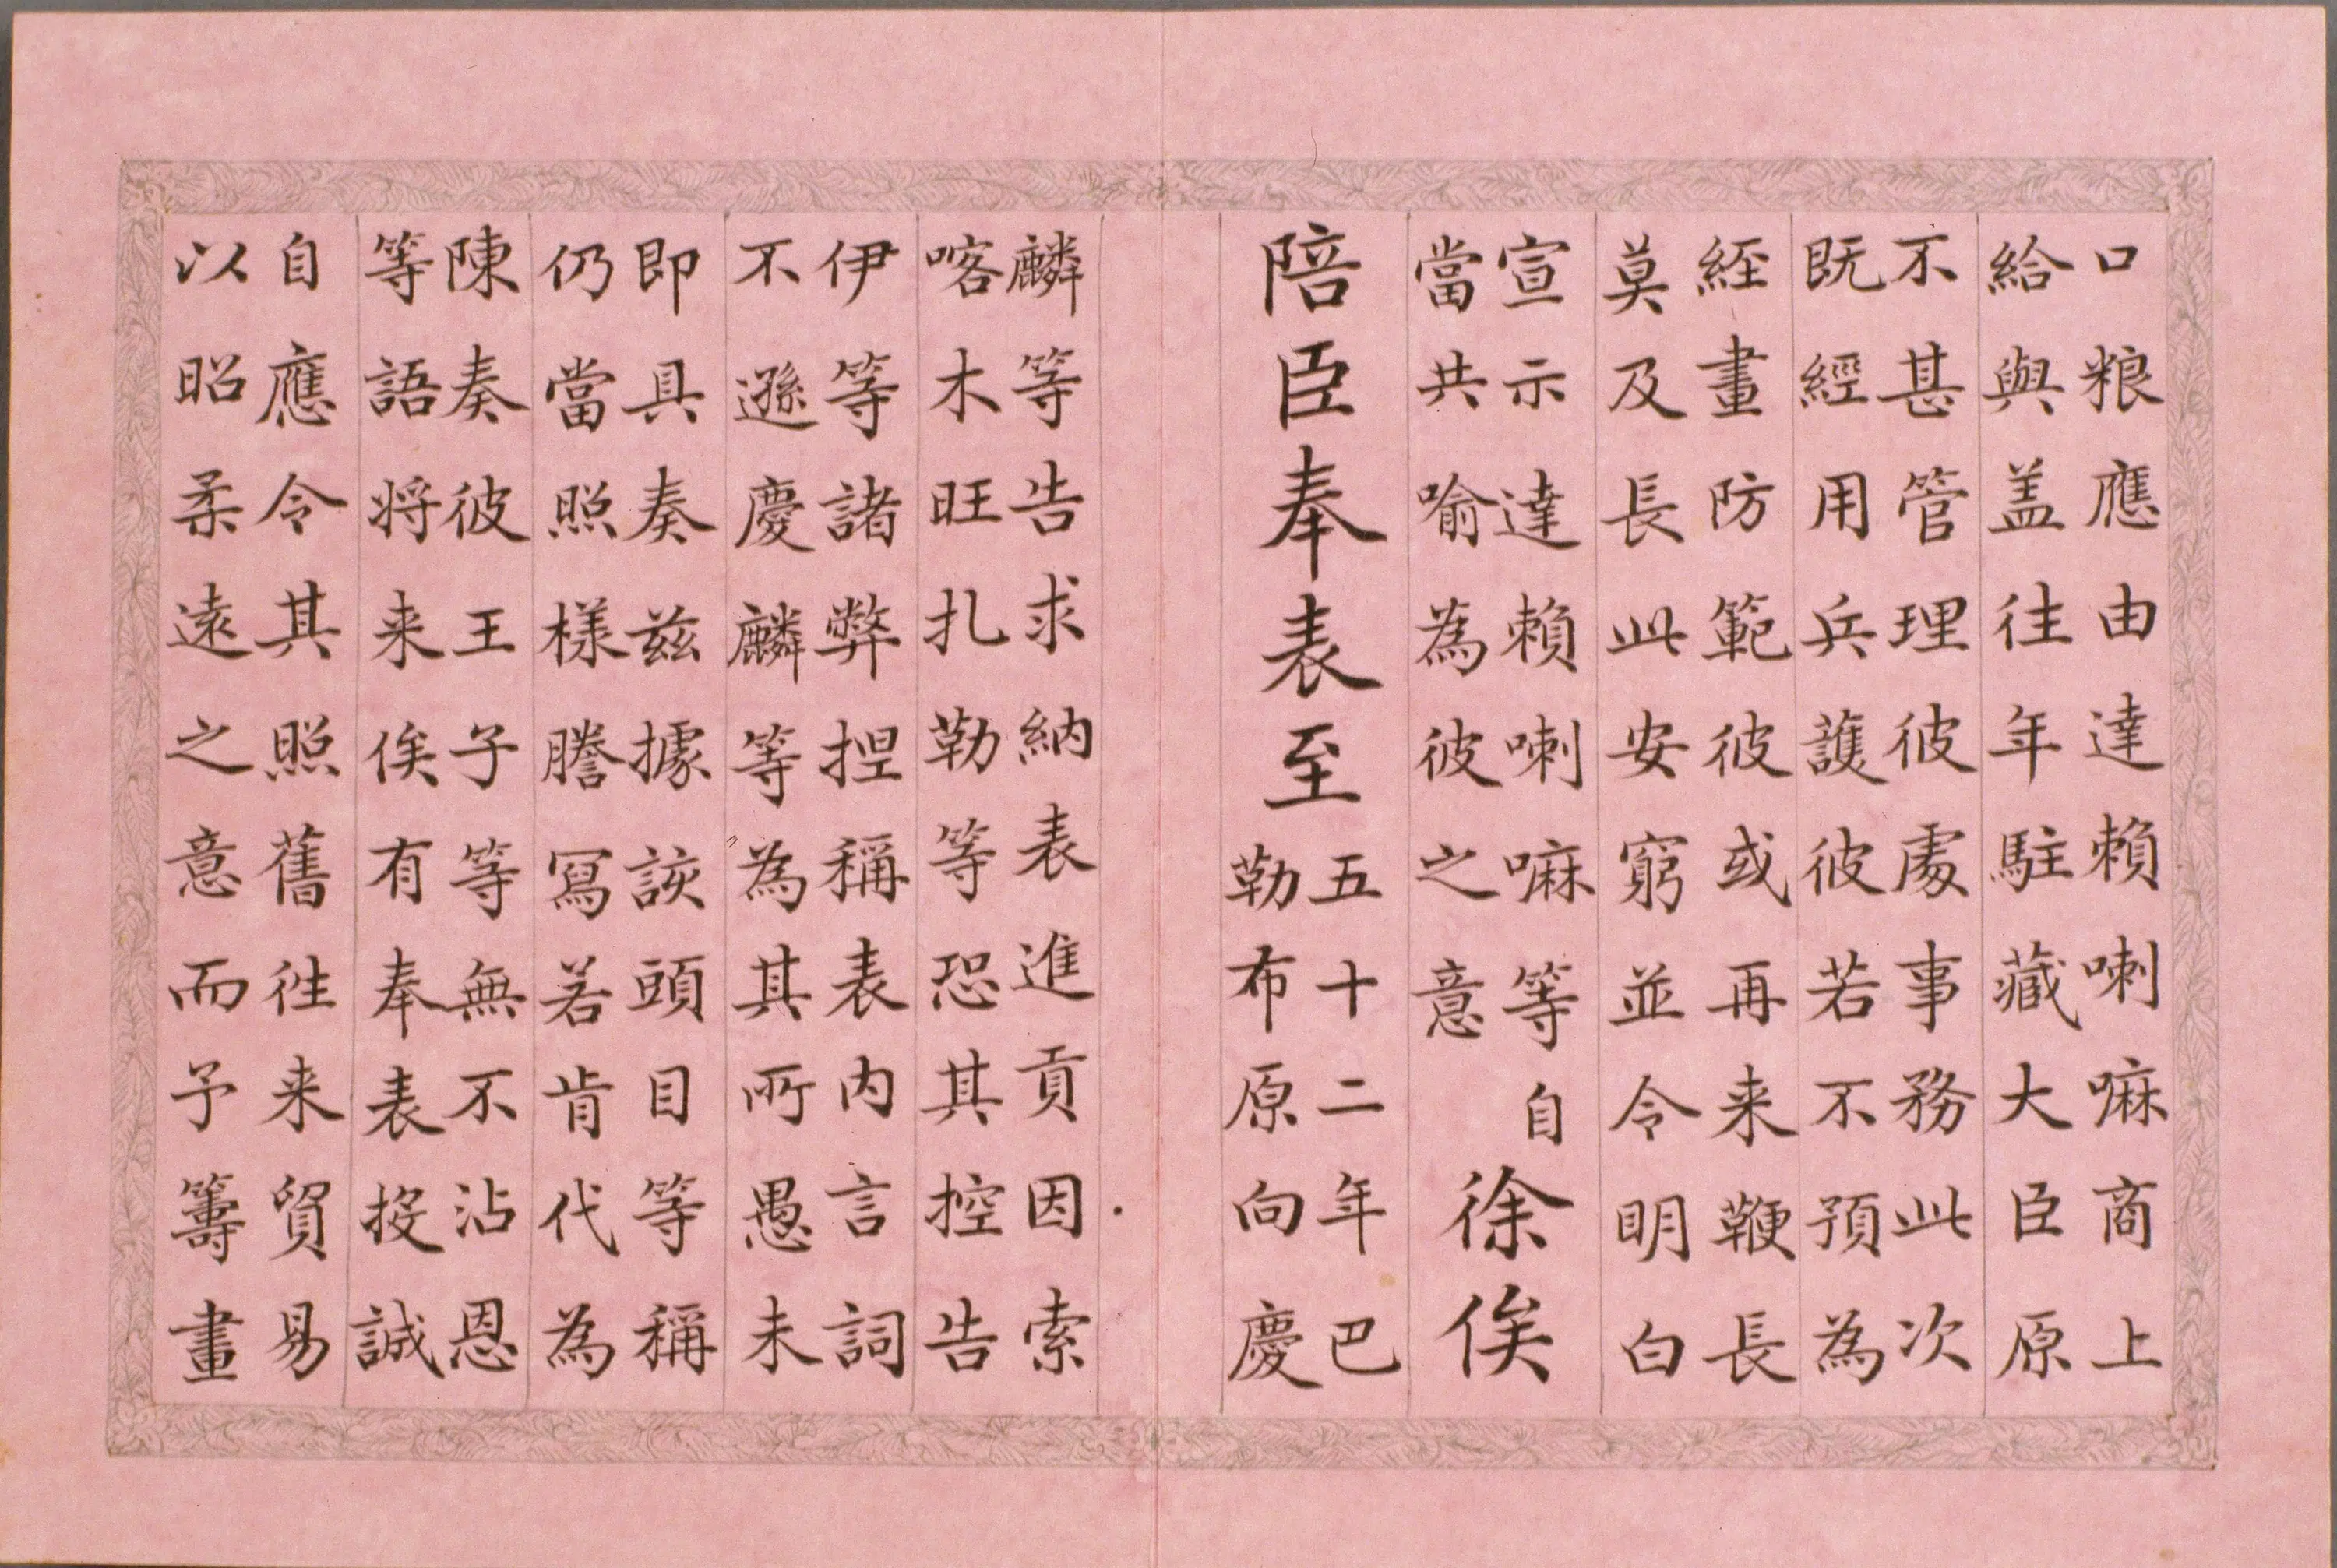 口粮應由達賴喇嘛商上
給與盖往年駐藏大臣原
不甚管理彼處事務此次
既經用兵護彼若不預為
經畫防範彼或再来鞭長
莫及長此安窮並令明白
宣示達賴喇嘛等自
當共喻為彼之意
徐俟
陪臣奉表至
五十二年巴
勒布原向慶
麟等告求納表進貢因索
喀木旺扎勒等恐其控告
伊等諸弊捏稱表内言詞
不遜慶麟等為其所愚未
即具奏兹據該頭目等稱
仍當照樣謄寫若肯代為
陳奏彼王子等無不沾恩
等語将来俟有奉表投誠
自應令其照舊徃来貿易
以昭柔遠之意而予籌畫